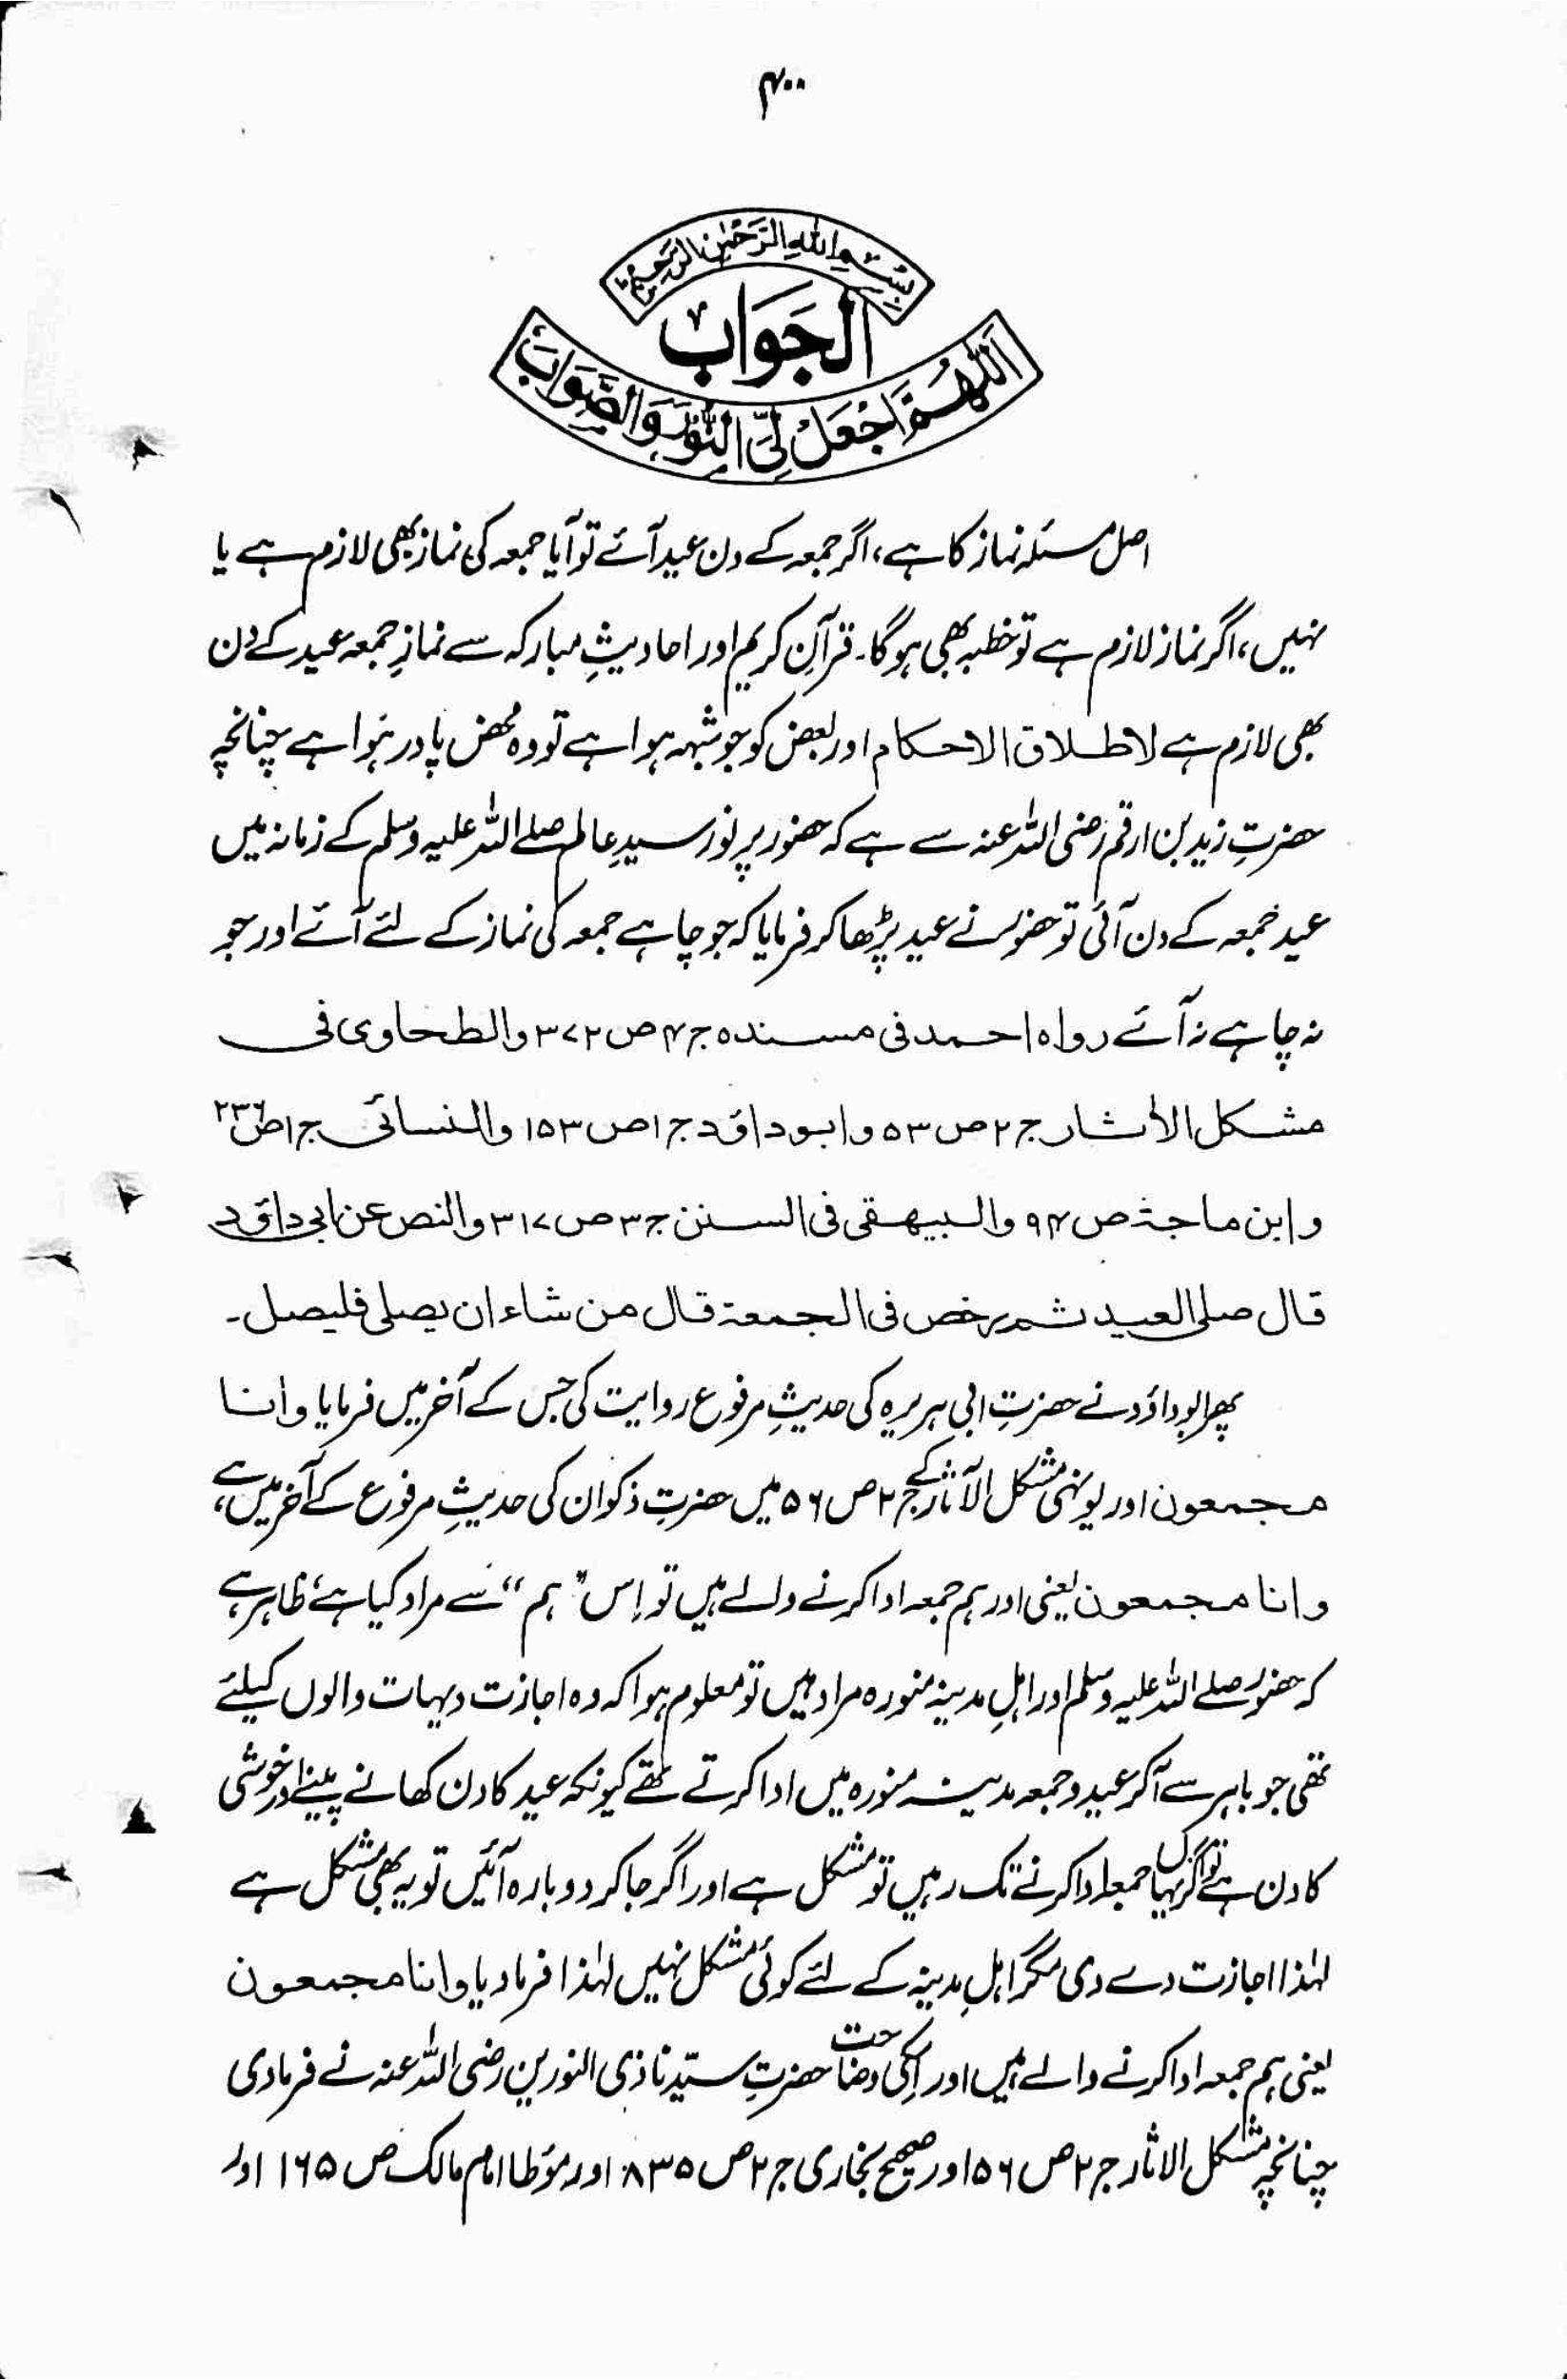 ۴۰۰
بِسْمِ اللهِ الرَّحْمٰنِ الرَّحِيْمِ
اَلْجَوَابْ
اَللّٰهُمَّ اجْعَلْ لِّيَ النُّوْرَ وَالصَّوَابَ
اصل مسئلہ نماز کا ہے، اگر جمعہ کے دن عید آئے تو آیا جمعہ کی نماز بھی لازم ہے یا
نہیں، اگر نماز لازم ہے تو خطبہ بھی ہوگا۔ قرآنِ کریم اور احادیثِ مبارکہ سے نمازِ جمعہ عید کے دن
بھی لازم ہے لاطلاق الاحکام اور بعض کو جو شبہہ ہوا ہے تو وہ محض پا در ہوا ہے چنانچہ
حضرتِ زید بن ارقم رضی اللہ عنہ سے ہے کہ حضور پر نور سیدِ عالم صلے اللہ علیہ وسلم کے زمانہ میں
عید جمعہ کے دن آئی تو حضور نے عید پڑھا کر فرمایا کہ جو چاہے جمعہ کی نماز کے لئے آئے اور جو
نہ چاہے نہ آئے رواہ احمد فی مسندہ ج ۴ ص ۳۷۲ والطحاوی فی
مشکل الاٰثار ج ۲ ص ۵۳ وابوداؤد ج ۱ ص ۱۵۳ والنسائی ج ۱ ص ۲۳۶
وابن ماجۃ ص ۹۴ والبیهقی فی السنن ج ۳ ص ۳۱۷ والنص عن ابی داؤد
قال صلی العید ثم رخص فی الجمعۃ قال من شاء ان یصلی فلیصل۔
پھر ابوداؤد نے حضرتِ ابی ہریرہ کی حدیثِ مرفوع روایت کی جس کے آخر میں فرمایا وانا
مجمعون اور یونہی مشکل الآثار کے ج ۲ ص ۵۶ میں حضرتِ ذکوان کی حدیثِ مرفوع کے آخر میں ہے،
وانا مجمعون یعنی اور ہم جمعہ ادا کرنے والے ہیں تو اِس "ہم" سے مراد کیا ہے؟ ظاہر ہے
کہ حضور صلے اللہ علیہ وسلم اور اہلِ مدینہ منورہ مراد ہیں تو معلوم ہوا کہ وہ اجازت دیہات والوں کیلئے
تھی جو باہر سے آکر عید و جمعہ مدینہ منورہ میں ادا کرتے تھے کیونکہ عید کا دن کھانے پینے اور خوشی
کا دن ہے تو اگر یہاں جمعہ ادا کرنے تک رہیں تو مشکل ہے اور اگر جا کر دوبارہ آئیں تو یہ بھی مشکل ہے
لہٰذا اجازت دے دی مگر اہلِ مدینہ کے لئے کوئی مشکل نہیں لہٰذا فرما دیا وانا مجمعون
یعنی ہم جمعہ ادا کرنے والے ہیں اور اسکی وضاحت حضرتِ سیّدنا ذی النورین رضی اللہ عنہ نے فرما دی
چنانچہ مشکل الاثار ج ۲ ص ۵۶ اور صحیح بخاری ج ۲ ص ۸۳۵ اور مؤطا امام مالک ص ۱۶۵ اور